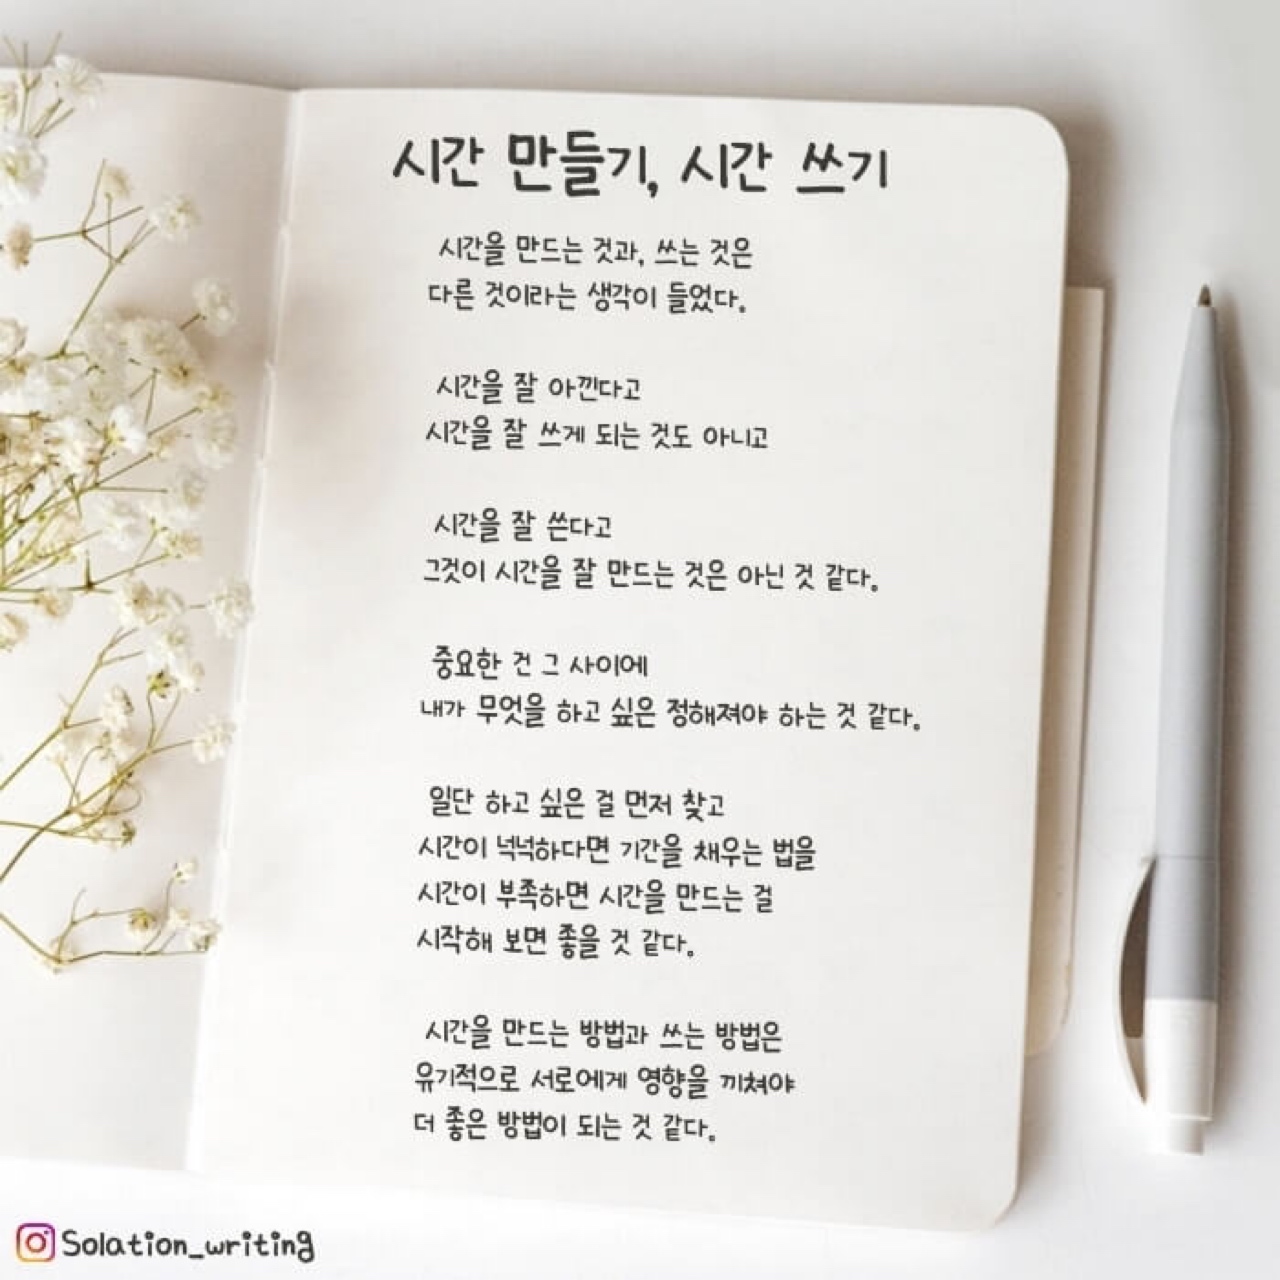 시간 만들기, 시간 쓰기
시간을 만드는 것과, 쓰는 것은
다른 것이라는 생각이 들었다.
시간을 잘 아낀다고
시간을 잘 쓰게 되는 것도 아니고
시간을 잘 쓴다고
그것이 시간을 잘 만드는 것은 아닌 것 같다.
중요한 건 그 사이에
내가 무엇을 하고 싶은 정해져야 하는 것 같다.
일단 하고 싶은 걸 먼저 찾고
시간이 넉넉하다면 기간을 채우는 법을
시간이 부족하면 시간을 만드는 걸
시작해 보면 좋을 것 같다.
시간을 만드는 방법과 쓰는 방법은
유기적으로 서로에게 영향을 끼쳐야
더 좋은 방법이 되는 것 같다.
Solation_writing